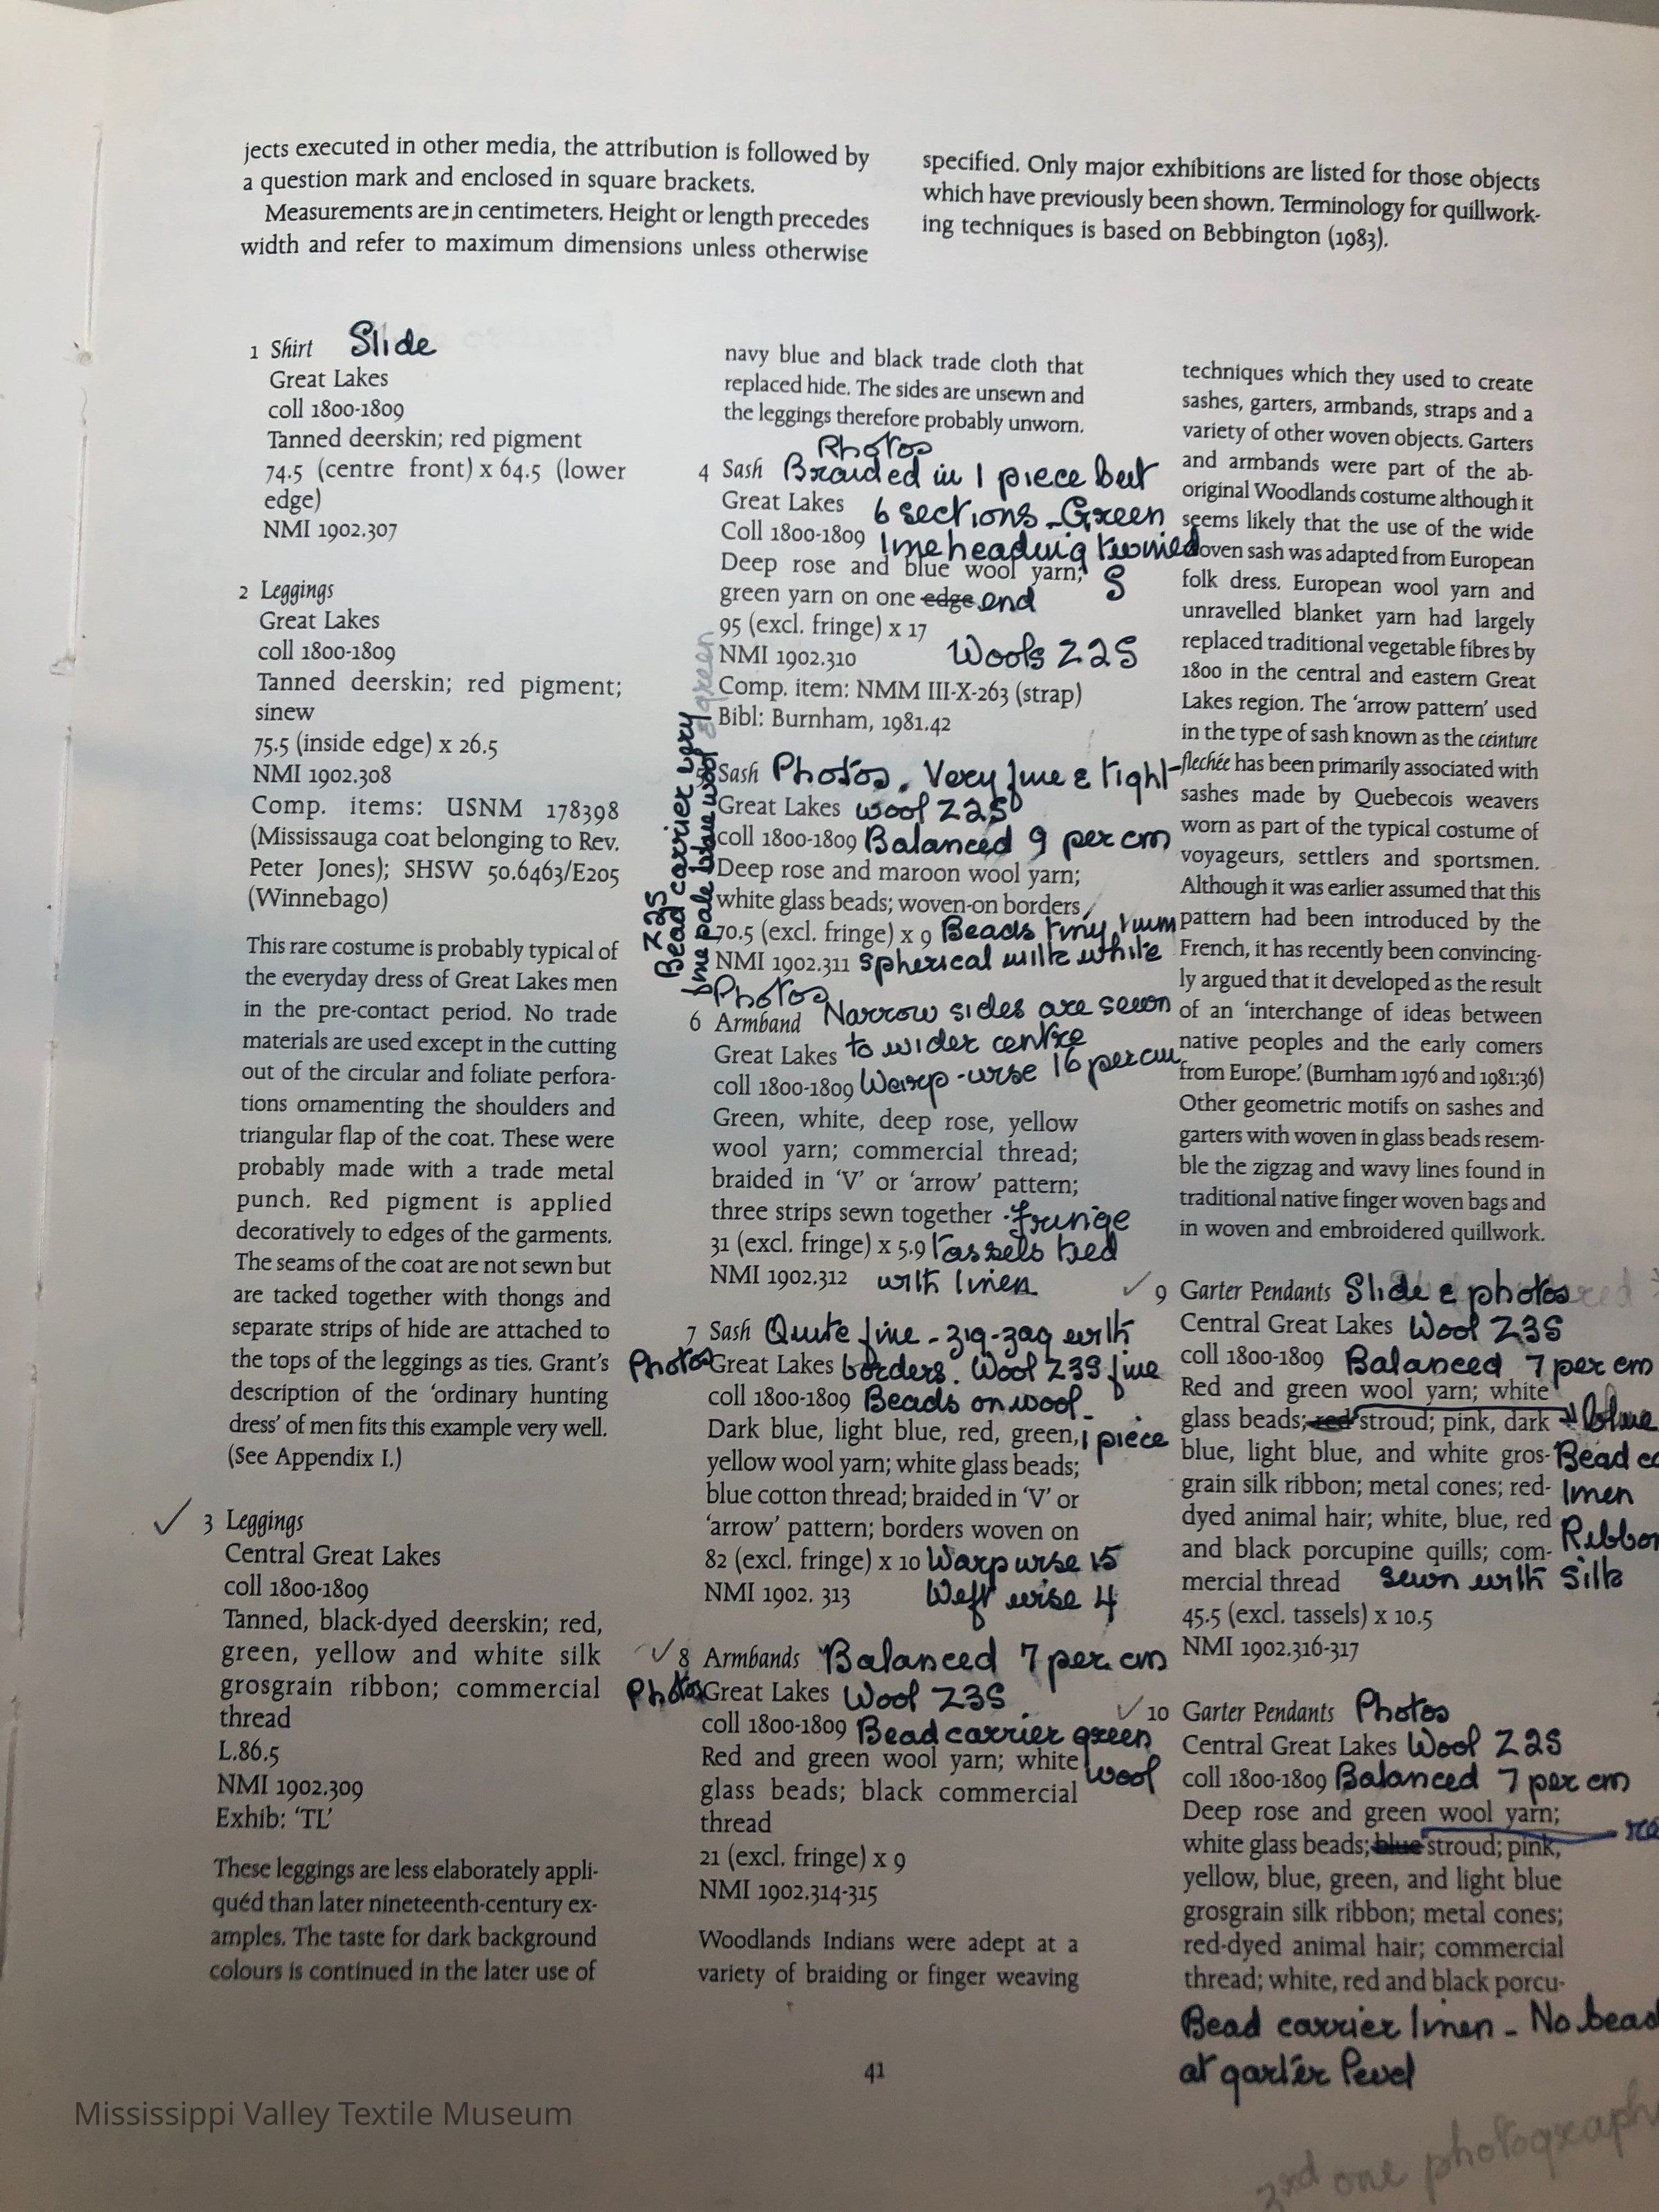 jects executed in other media, the attribution is followed by
a question mark and enclosed in square brackets.
Measurements are in centimeters. Height or length precedes
width and refer to maximum dimensions unless otherwise
specified. Only major exhibitions are listed for those objects
which have previously been shown. Terminology for quillwork-
ing techniques is based on Bebbington (1983).
1 Shirt Slide
Great Lakes
coll 1800-1809
Tanned deerskin; red pigment
74.5 (centre front) x 64.5 (lower
edge)
NMI 1902.307
2 Leggings
Great Lakes
coll 1800-1809
Tanned deerskin; red pigment;
sinew
75.5 (inside edge) x 26.5
NMI 1902.308
Comp. items: USNM 178398
(Mississauga coat belonging to Rev.
Peter Jones); SHSW 50.6463/E205
(Winnebago)
This rare costume is probably typical of
the everyday dress of Great Lakes men
in the pre-contact period. No trade
materials are used except in the cutting
out of the circular and foliate perfora-
tions ornamenting the shoulders and
triangular flap of the coat. These were
probably made with a trade metal
punch. Red pigment is applied
decoratively to edges of the garments.
The seams of the coat are not sewn but
are tacked together with thongs and
separate strips of hide are attached to
the tops of the leggings as ties. Grant's
description of the 'ordinary hunting
dress' of men fits this example very well.
(See Appendix I.)
3 Leggings
Central Great Lakes
coll 1800-1809
Tanned, black-dyed deerskin; red,
green, yellow and white silk
grosgrain ribbon; commercial
thread
L.86.5
NMI 1902.309
Exhib: 'TL'
These leggings are less elaborately appli-
quéd than later nineteenth-century ex-
amples. The taste for dark background
colours is continued in the later use of
navy blue and black trade cloth that
replaced hide. The sides are unsewn and
the leggings therefore probably unworn.
Photos
4 Sash Braided in 1 piece but
Great Lakes 6 sections - Green
Coll 1800-1809 line heading twined
Deep rose and blue wool yarn; S
green yarn on one edge end
95 (excl. fringe) x 17
NMI 1902.310 Wools Z2S
Comp. item: NMM III-X-263 (strap)
Bibl: Burnham, 1981.42
5 Sash Photos. Very fine & tight
Great Lakes wool Z2S
coll 1800-1809 Balanced 9 per cm
Deep rose and maroon wool yarn;
white glass beads; woven-on borders
70.5 (excl. fringe) x 9 Beads tiny 1mm
NMI 1902.311 spherical milk white
Z2S
Bead carrier very
fine pale blue wool
& green
Photos
6 Armband Narrow sides are sewn
Great Lakes to wider centre
coll 1800-1809 Warp-wise 16 per cm
Green, white, deep rose, yellow
wool yarn; commercial thread;
braided in 'V' or 'arrow' pattern;
three strips sewn together . fringe
31 (excl. fringe) x 5.9 tassels tied
NMI 1902.312 with linen
7 Sash Quite fine - zig-zag with
Photos Great Lakes borders. Wool Z3S fine
coll 1800-1809 Beads on wool -
Dark blue, light blue, red, green, 1 piece
yellow wool yarn; white glass beads;
blue cotton thread; braided in 'V' or
'arrow' pattern; borders woven on
82 (excl. fringe) x 10 Warp wise 15
NMI 1902. 313 Weft wise 4
8 Armbands Balanced 7 per cm
Photos Great Lakes Wool Z3S
coll 1800-1809 Bead carrier green
Red and green wool yarn; white wool
glass beads; black commercial
thread
21 (excl. fringe) x 9
NMI 1902.314-315
Woodlands Indians were adept at a
variety of braiding or finger weaving
techniques which they used to create
sashes, garters, armbands, straps and a
variety of other woven objects. Garters
and armbands were part of the ab-
original Woodlands costume although it
seems likely that the use of the wide
woven sash was adapted from European
folk dress. European wool yarn and
unravelled blanket yarn had largely
replaced traditional vegetable fibres by
1800 in the central and eastern Great
Lakes region. The 'arrow pattern' used
in the type of sash known as the ceinture
flechée has been primarily associated with
sashes made by Quebecois weavers
worn as part of the typical costume of
voyageurs, settlers and sportsmen.
Although it was earlier assumed that this
pattern had been introduced by the
French, it has recently been convincing-
ly argued that it developed as the result
of an 'interchange of ideas between
native peoples and the early comers
from Europe.' (Burnham 1976 and 1981:36)
Other geometric motifs on sashes and
garters with woven in glass beads resem-
ble the zigzag and wavy lines found in
traditional native finger woven bags and
in woven and embroidered quillwork.
9 Garter Pendants Slide & photos
Central Great Lakes Wool Z3S
coll 1800-1809 Balanced 7 per cm
Red and green wool yarn; white
glass beads; red stroud; pink, dark blue
blue, light blue, and white gros- Bead
grain silk ribbon; metal cones; red- linen
dyed animal hair; white, blue, red Ribbon
and black porcupine quills; com-
mercial thread sewn with silk
45.5 (excl. tassels) x 10.5
NMI 1902.316-317
10 Garter Pendants Photos
Central Great Lakes Wool Z2S
coll 1800-1809 Balanced 7 per cm
Deep rose and green wool yarn;
white glass beads; blue stroud; pink,
yellow, blue, green, and light blue
grosgrain silk ribbon; metal cones;
red-dyed animal hair; commercial
thread; white, red and black porcu-
Bead carrier linen - No bead
at garter level
41
Mississippi Valley Textile Museum
one photograph